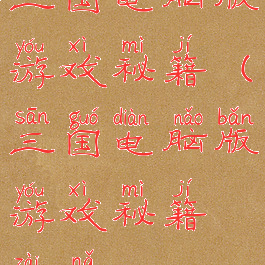 三国电脑版
yóu xì mì jí
游戏秘籍（
sān guó diàn nǎo bǎn
三国电脑版
yóu xì mì jí
游戏秘籍
zài nǎ